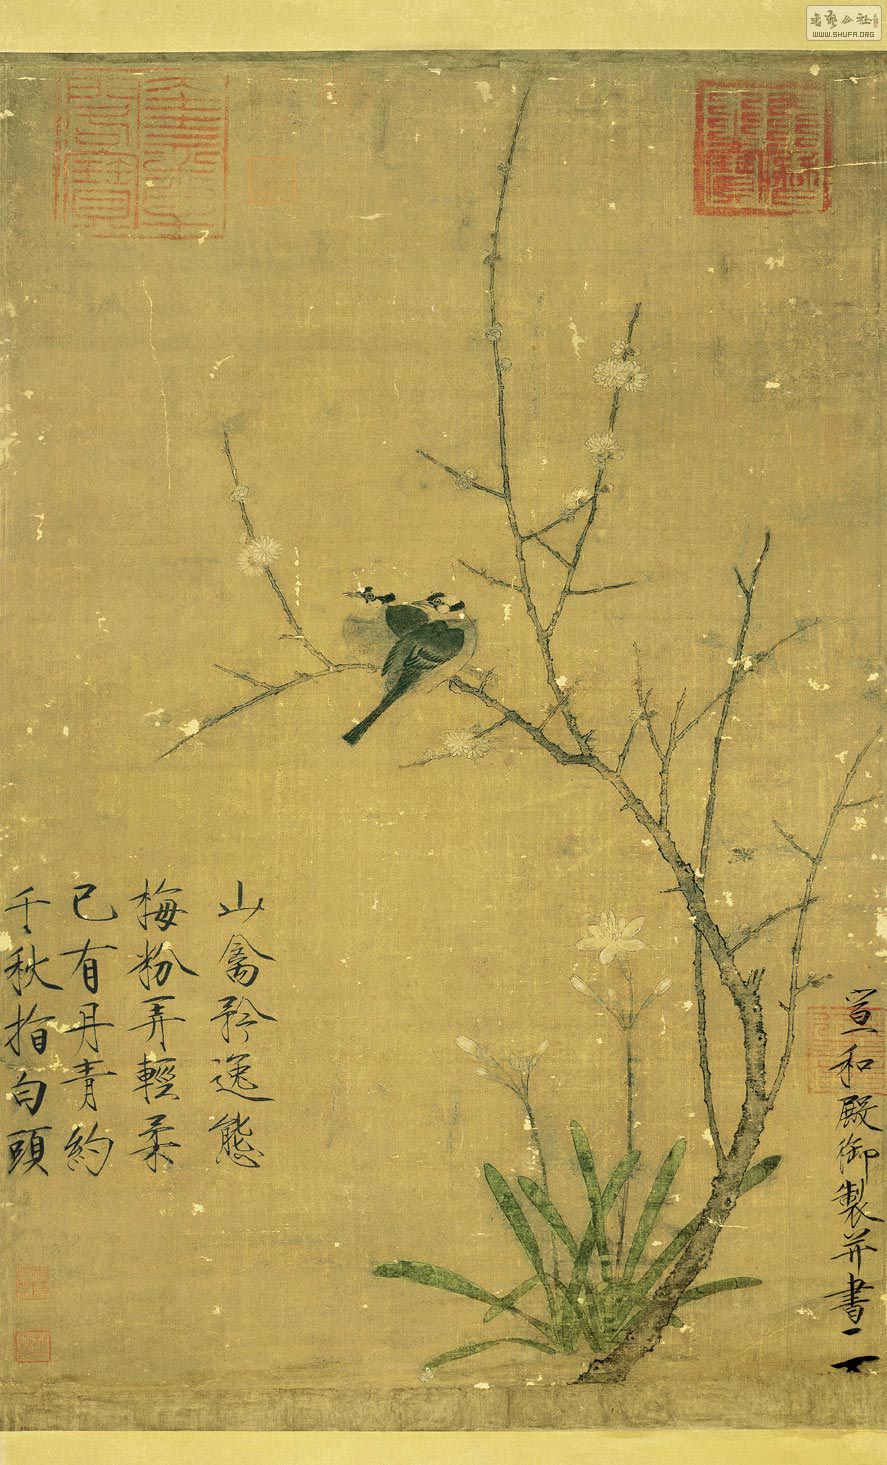 山禽矜逸態
梅粉弄輕柔
已有丹青約
千秋指白頭
宣和殿御製并書
WWW.SHUFA.ORG